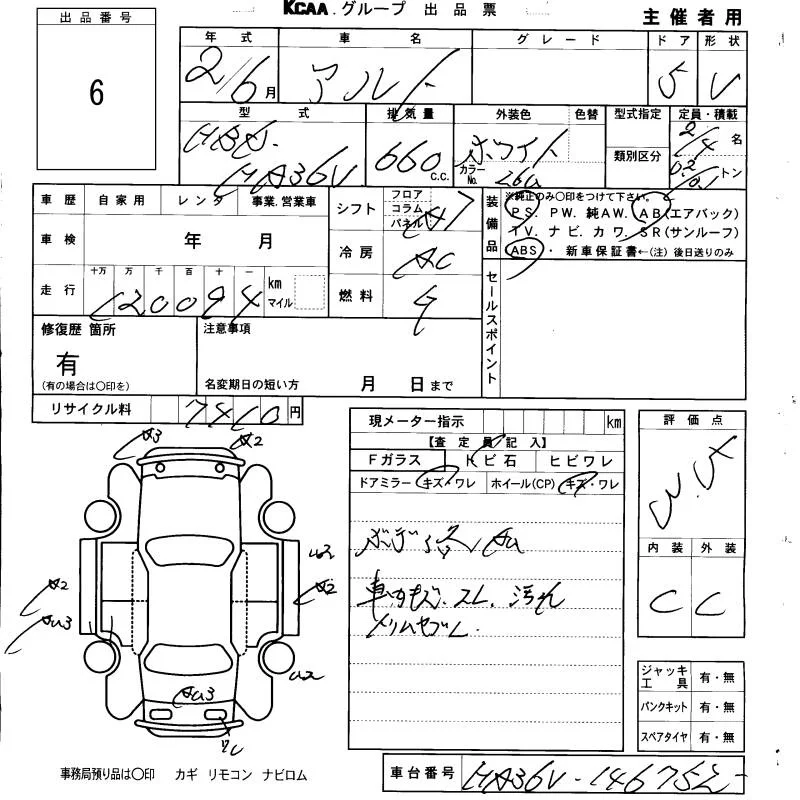 KCAA.グループ 出品票
主催者用
出品番号
6
年式 車名 グレード ドア 形状
2/6月 アルト 5 V
型式 排気量 外装色 色替 型式指定 定員・積載
HBD- 660 C.C. ホワイト 2/4 名
HA36V カラーNo. 26U 類別区分 0.2/0.1 トン
車歴 自家用 レンタ 事業.営業車
シフト フロア コラム パネル A7
装備品 ※純正のみ〇印をつけて下さい。
PS. PW. 純AW. AB(エアバック)
TV. ナビ. カワ. SR(サンルーフ)
ABS・ 新車保証書←(注) 後日送りのみ
車検 年 月
冷房 AC
走行 十万 万 千 百 十 一
120094 km マイル
燃料
セールスポイント
修復歴 箇所
有
(有の場合は〇印を)
注意事項
名変期日の短い方 月 日まで
リサイクル料 7410円
現メーター指示 km
【査定員記入】
Fガラス トビ石 ヒビワレ
ドアミラー キズ・ワレ ホイール(CP) キズ・ワレ
車内キズ、スレ、汚れ
評価点
内装 外装
C C
A3 A2
U2
A2 A2
AU3
U2
AU3
ジャッキ工具 有・無
パンクキット 有・無
スペアタイヤ 有・無
事務局預り品は〇印 カギ リモコン ナビロム
車台番号 HA36V-146752-